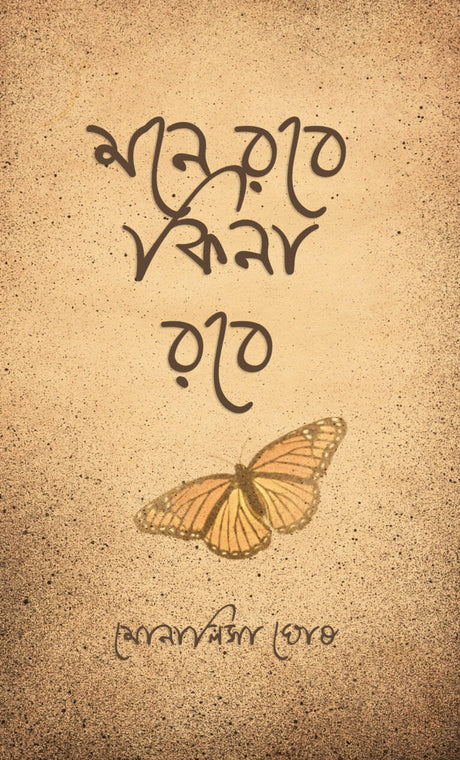 মনে রবে
কিনা
রবে
মোনালিসা ঘোষ